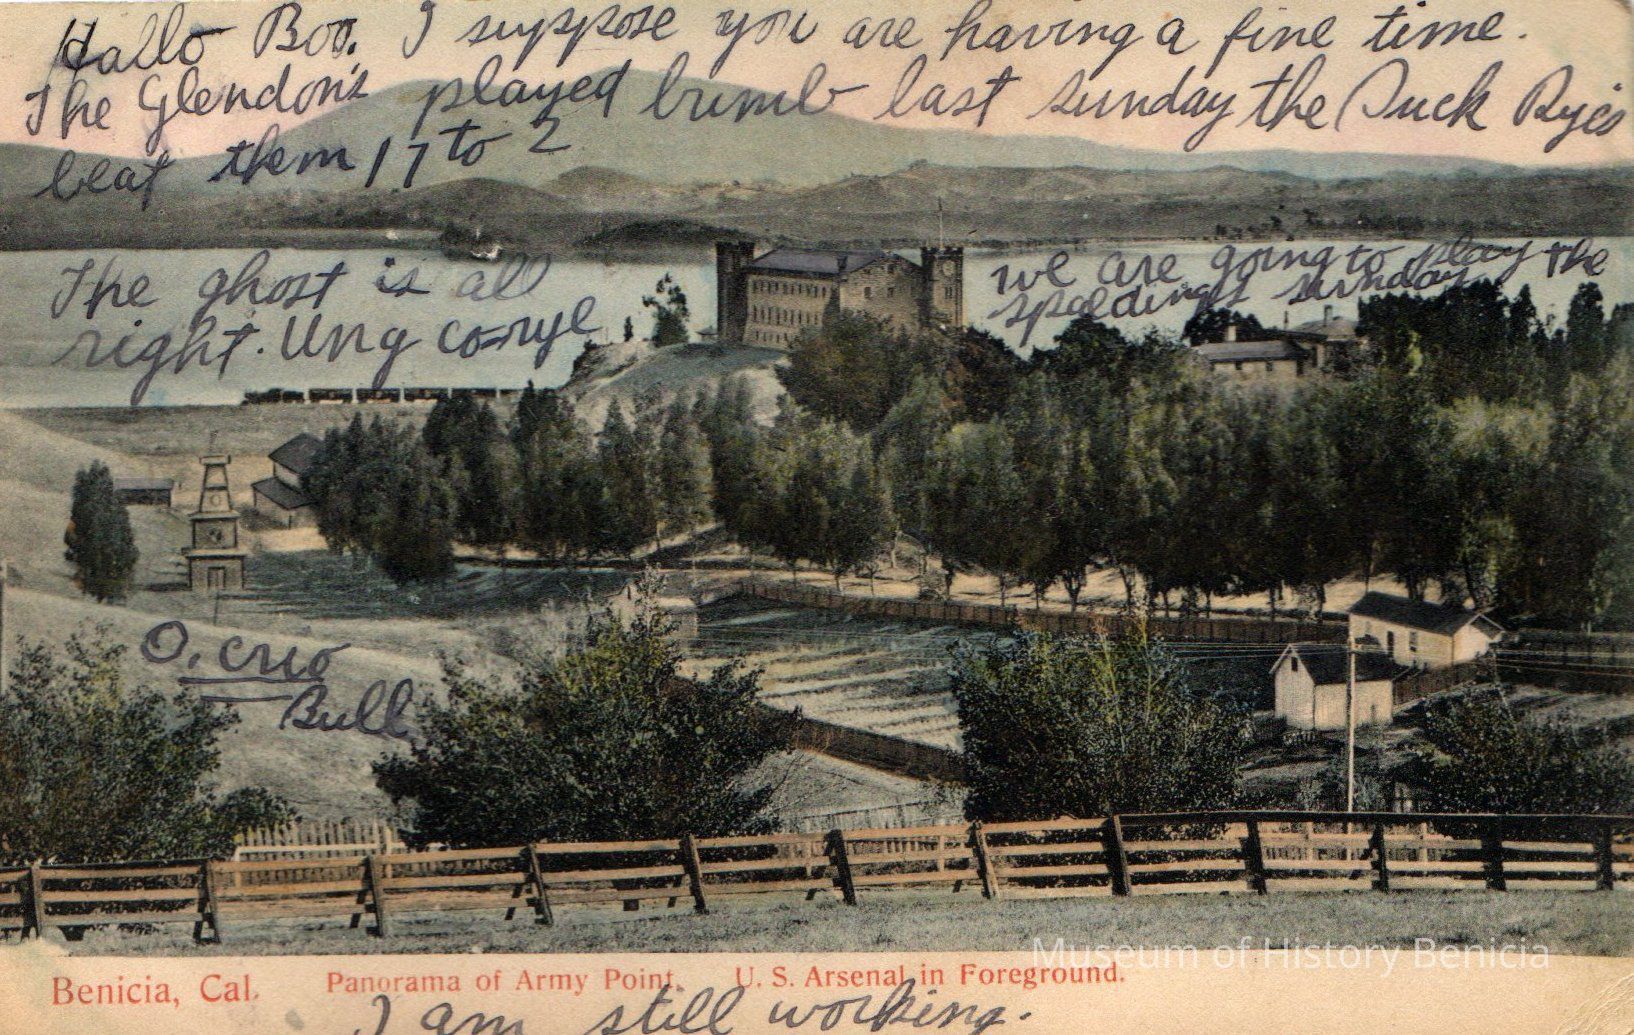 Hallo Boo. I suppose you are having a fine time.
The Glendon's played bumb last sunday the Duck Ryies
beat them 17 to 2
The ghost is all
right. Ung co-nye
we are going to play the
spaldings sunday
O. crio
Bull
Museum of History Benicia
Benicia, Cal. Panorama of Army Point. U. S. Arsenal in Foreground.
I am still working.